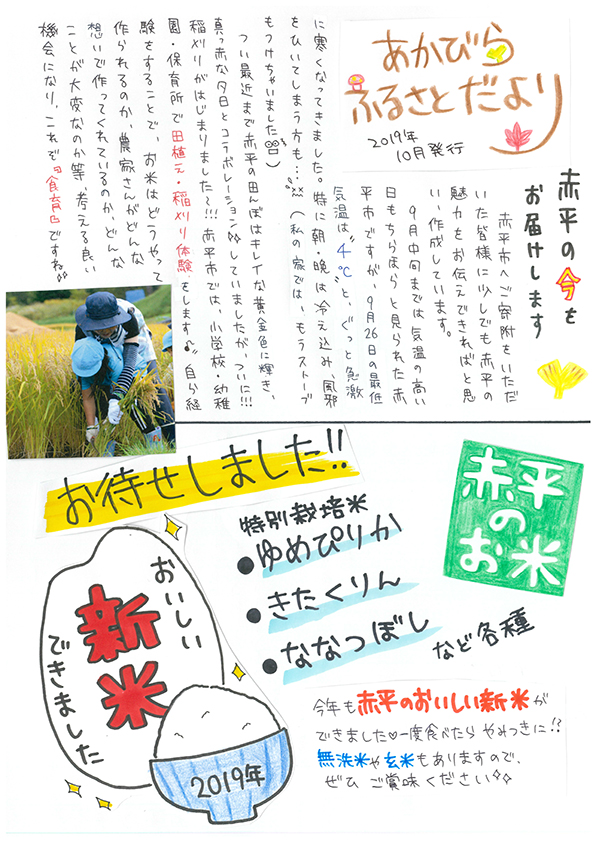 あかびら
ふるさとだより
2019年
10月発行
赤平の今を
お届けします
赤平市へご寄附をいただ
いた皆様に少しでも赤平の
魅力をお伝えできればと思
い、作成しています。
9月中旬までは気温の高い
日もちらほらと見られた赤
平市ですが、9月26日の最低
気温は"4℃"と、ぐっと急激
に寒くなってきました。特に朝・晩は冷え込み、風邪
をひいてしまう方も…(私の家では、もうストーブ
もつけちゃいました)
つい最近まで赤平の田んぼはキレイな黄金色に輝き、
真っ赤な夕日とコラボレーションしていましたが、ついに!!!
稲刈りがはじまりました〜!!!赤平市では、小学校・幼稚
園・保育所で田植え・稲刈り体験をします♪自ら経
験をすることで、お米はどうやって
作られるのか、農家さんがどんな
想いで作ってくれているのか、どんな
ことが大変なのか等、考える良い
機会になり、これぞ『食育』ですね
お待せしました!!
赤平
の
お米
特別栽培米
●ゆめぴりか
●きたくりん
●ななつぼし
など各種
おいしい
新米
できました
2019年
今年も赤平のおいしい新米が
できました♡一度食べたらやみつきに!?
無洗米や玄米もありますので、
ぜひご賞味ください